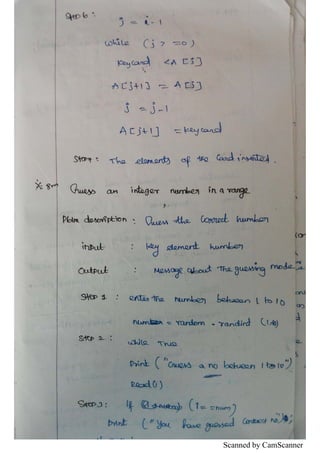 Step 6 :
j = i - 1
while (j > =0)
Keycard <A [j]
A[j+1] = A[j]
j = j-1
A[j+1] = keycard
Step 7 : The elements of the Card inserted.
8m Guess an integer number in a range
Pblm description : Guess the Correct number
input : key element number
Output : Message about The guessing made
Step 1 : enter The Number between 1 to 10
num = random . randint (1,10)
Step 2 : while True
Print ("Guess a no between 1 to 10")
Read(i)
Step 3 : If (i = =num)
Print ("You have guessed Correct no");
Scanned by CamScanner